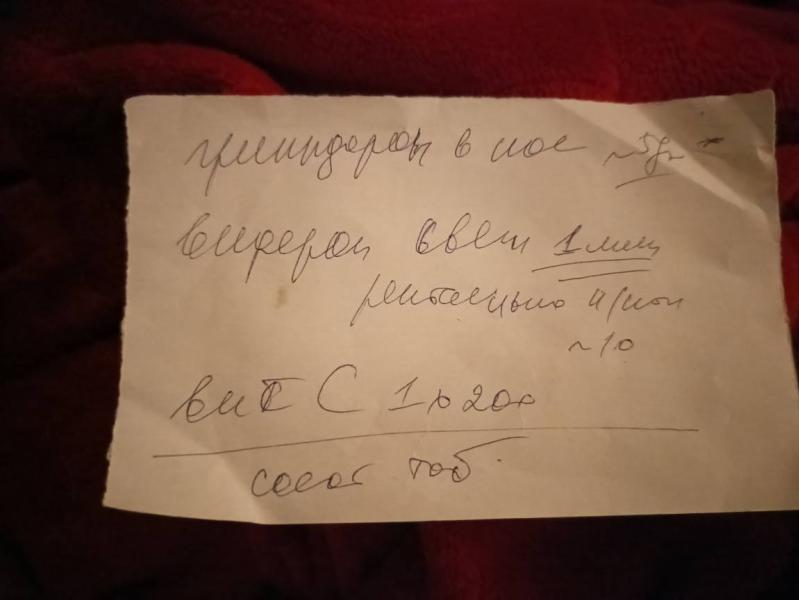 гриппферон в нос ~5дн
виферон свеч 1 млн
ректально н/ноч
~10
вит С 1 х 200
сосат таб.